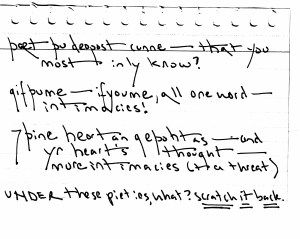 peet pu deopost cunne — that you
most inly know?
gifpume — ifyoume, all one word —
intimacies!
pine heart an geþoht as — and
yr heart's thought —
more intimacies (it's a threat)
UNDER these pieties, what? scratch it back.